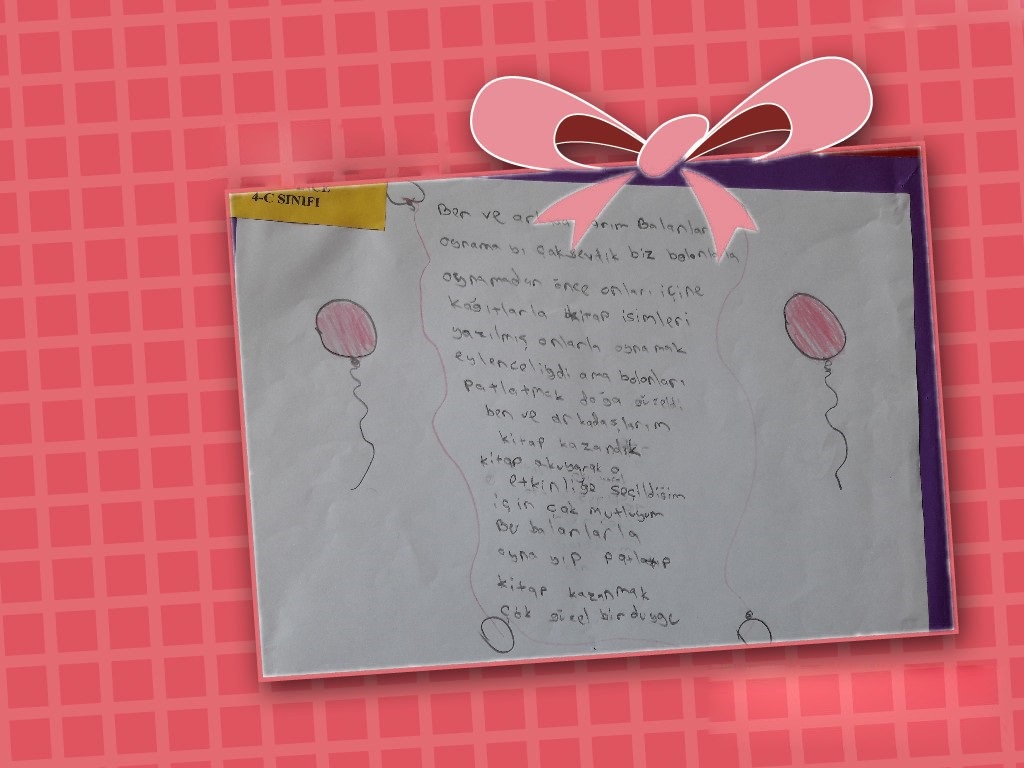 4-C SINIFI
Ben ve Balonlar
oynama bı çok sevdik biz balonlarla
oynamadan önce onları içine
kağıtlarla kitap isimleri
yazılmış onlarla oynamak
eylenceliydi ama balonları
patlatmak dağa güzeldi
ben ve arkadaşlarım
kitap kazandık
kitap okuyarak o
etkinliğe seçildiğim
için çok mutluyum
Be balanlarla
oyna yıp patlatıp
kitap kazanmak
Çok güzel bir duygu